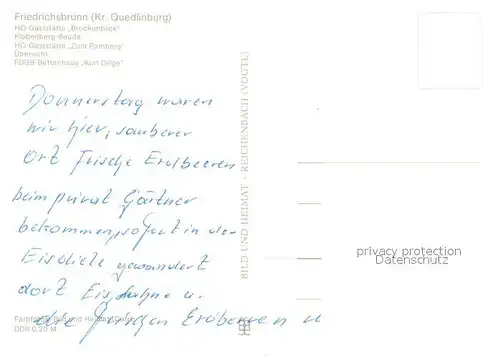 Friedrichsbrunn (Kr. Quedlinburg)
HO-Gaststätte „Brockenblick"
Klobenberg-Baude
HO-Gaststätte „Zum Ramberg"
Übersicht
FDGB-Bettenhaus „Kurt Dillge"
Donnerstag waren
wir hier, sauberer
Ort Frische Erdbeeren
beim privat Gärtner
bekommen, sofort in der
Eisdiele gewandert
dort Eis, Sahne u.
die frischen Erdbeeren u
Farbfotos: Bild und Heimat
DDR 0,20 M
BILD UND HEIMAT · REICHENBACH (VOGTL)
privacy protection
Datenschutz